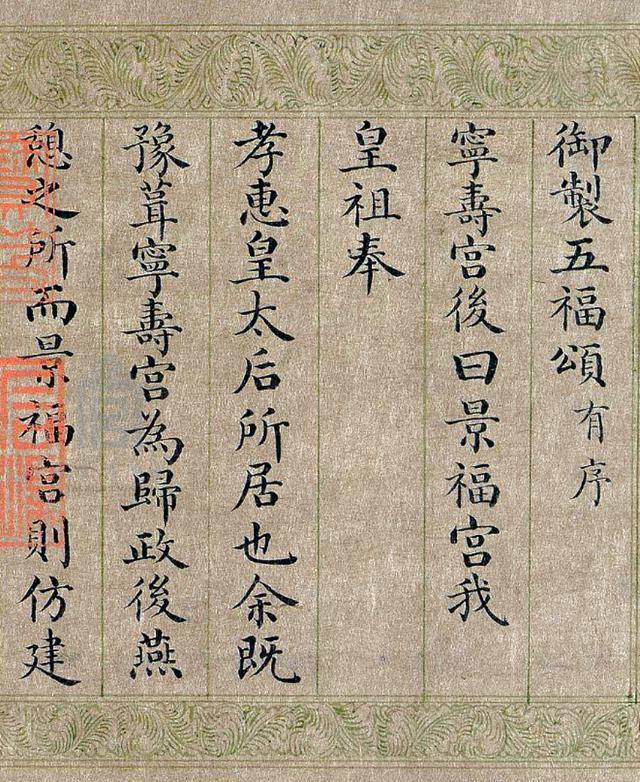 御製五福頌有序
寧壽宮後曰景福宮我
皇祖奉
孝惠皇太后所居也余既
豫葺寧壽宮為歸政後燕
憩之所而景福宮則仿建